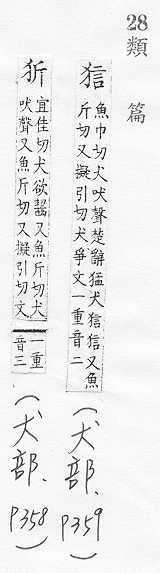 28 類篇
狺
魚巾切犬吠聲楚辭猛犬狺狺又魚
斤切又擬引切犬爭文一重音二
(犬部、p359)
㹞
宜佳切犬欲齧又魚斤切犬
吠聲又魚斤切又擬引切文
一重
音三
(犬部、p358)